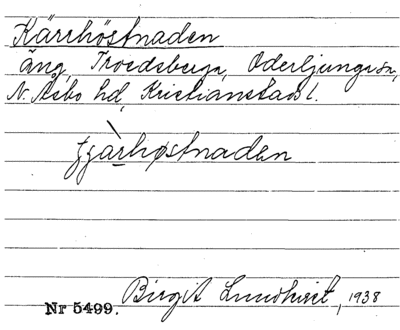 Kärrhöstnaden
äng, Troedsberga, Oderljunga sn,
N. Åsbo hd, Kristianstads l.
çàrhøstnadən
Birgit Lundhird, 1938
Nr 5499.